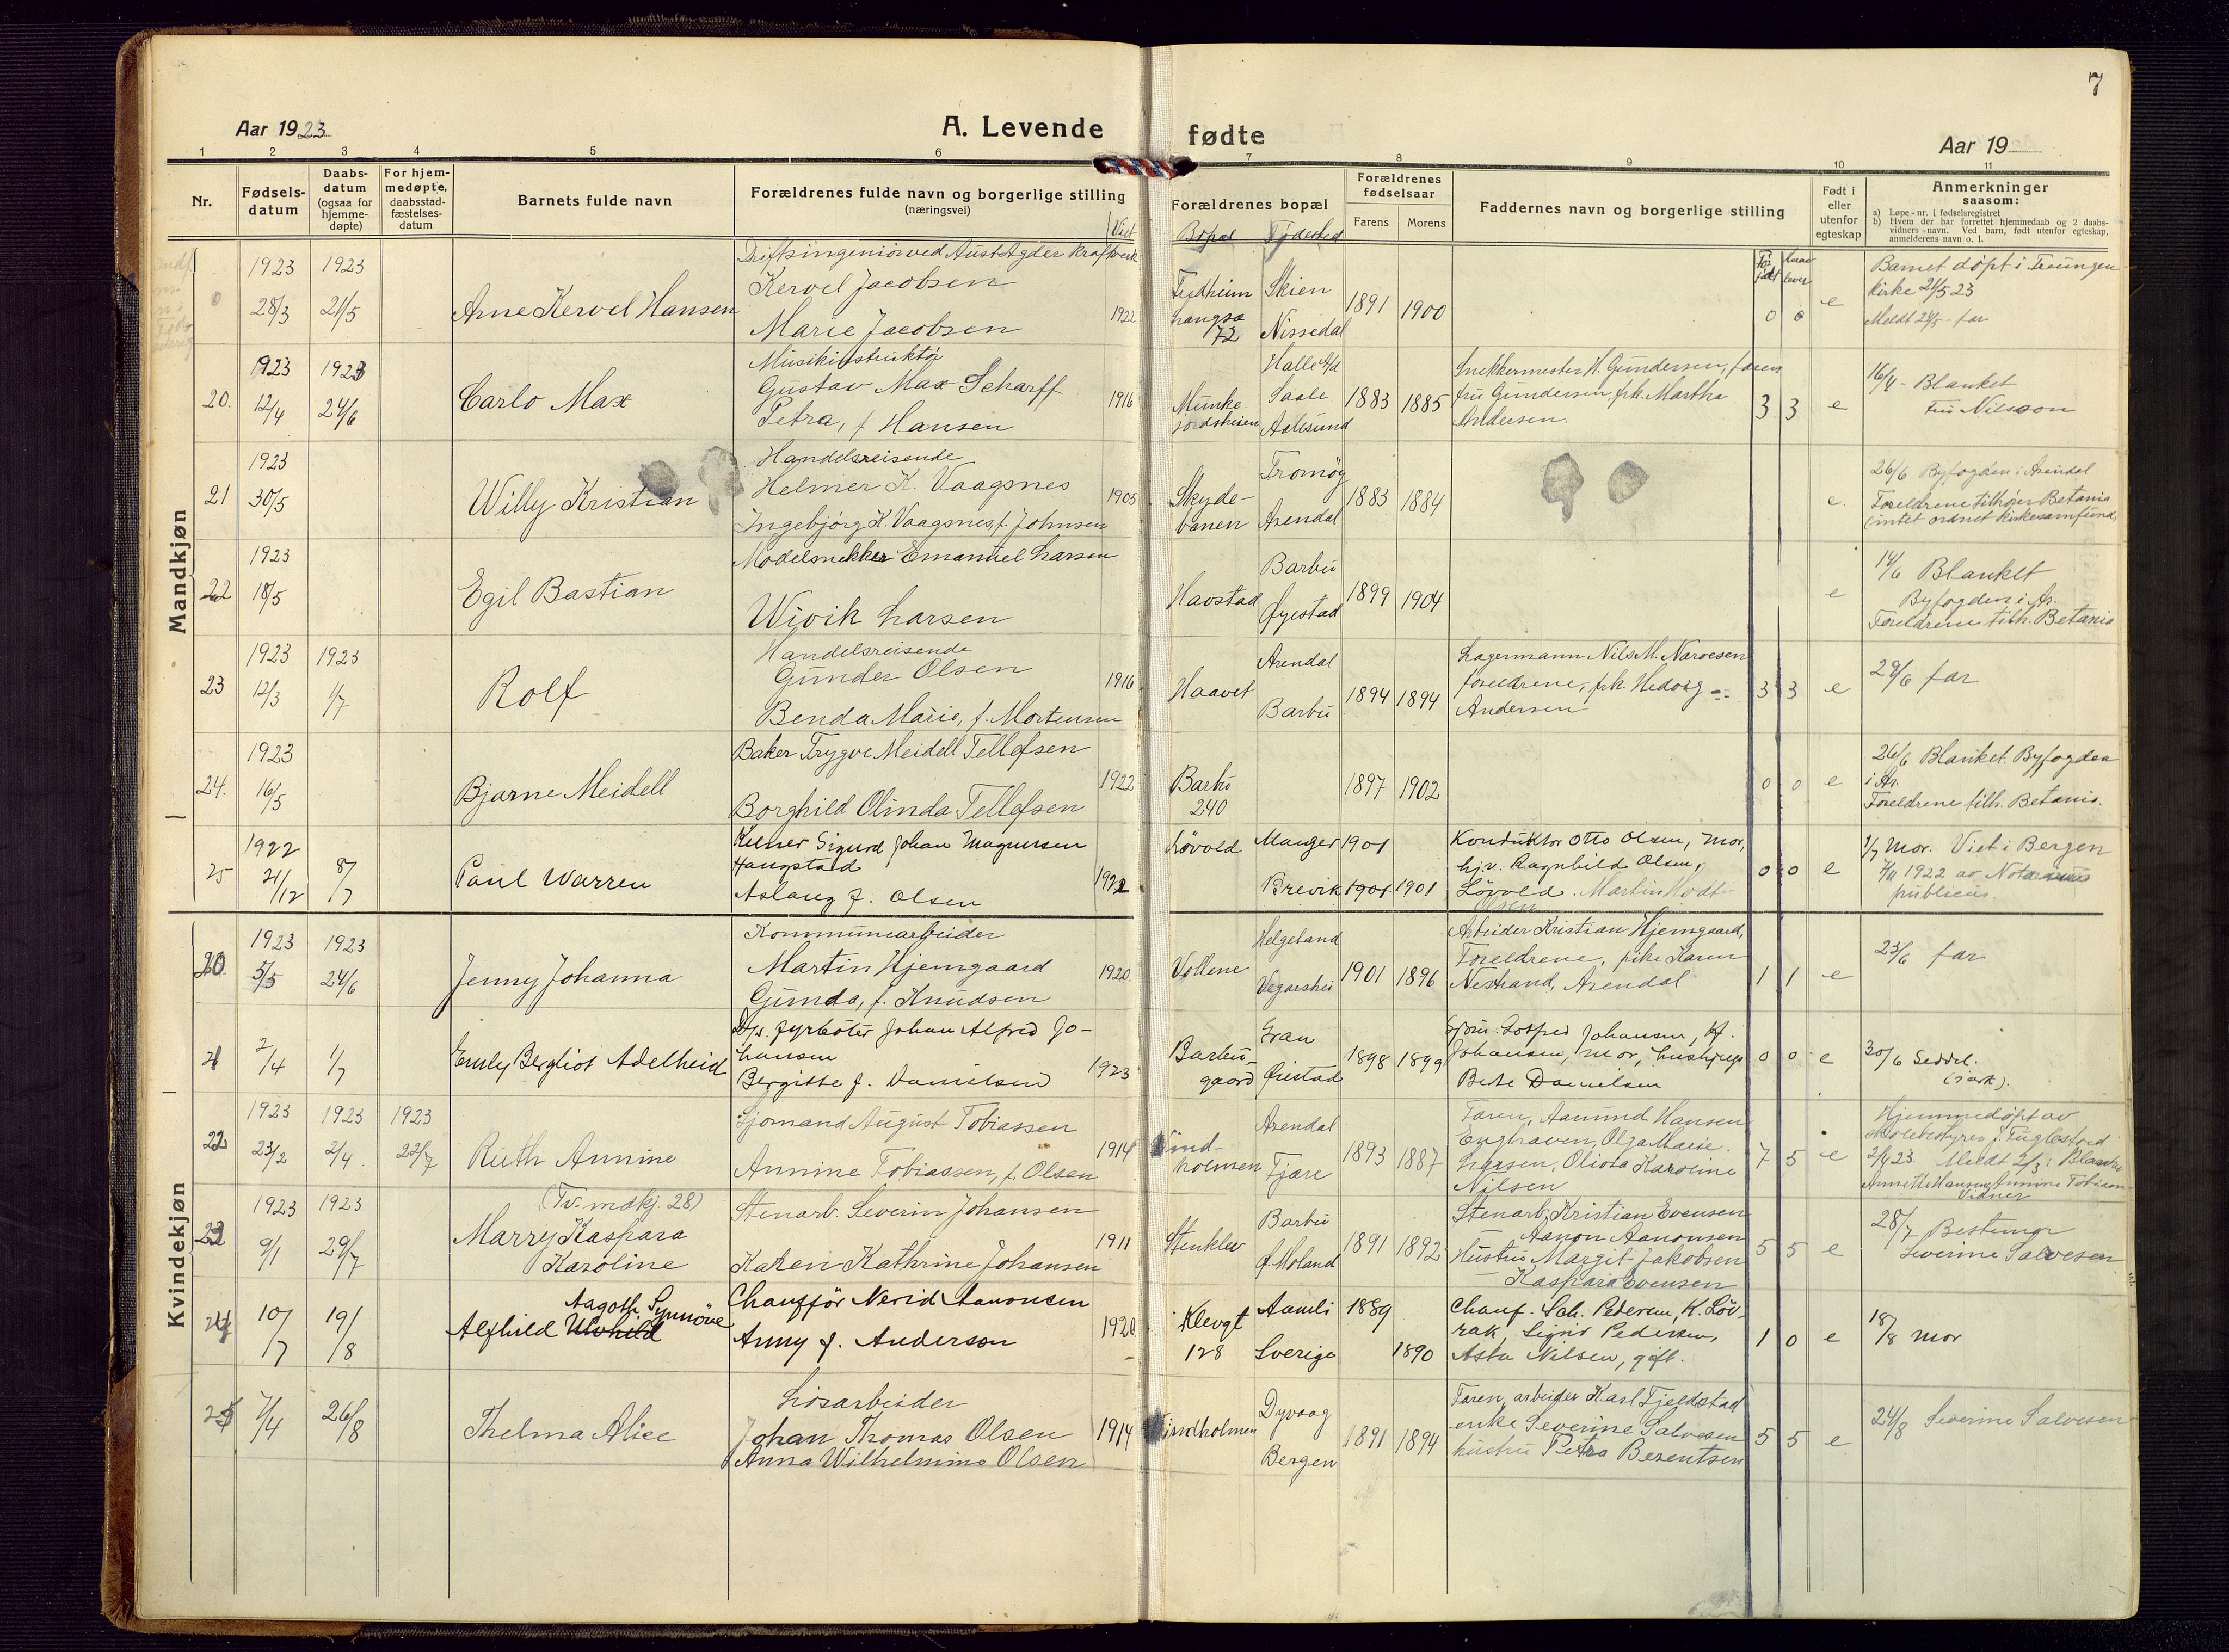 7
Aar 1923
A. Levende fødte
Aar 19
1 2 3 4 5 6 7 8 9 10 11
Nr.
Fødsels-
datum
Daabs-
datum
(ogsaa for
hjemme-
døpte)
For hjem-
medøpte,
daabsstad-
fæstelses-
datum
Barnets fulde navn
Forældrenes fulde navn og borgerlige stilling
(næringsvei)
Viet
Forældrenes bopæl
Bopæl Fødested
Forældrenes
fødselsaar
Farens Morens
Faddernes navn og borgerlige stilling
Født i
eller
utenfor
egteskap
Anmerkninger
saasom:
a) Løpe-nr. i fødselsregistret
b) Hvem der har forrettet hjemmedaab og 2 daabs-
vidners navn. Ved barn, født utenfor egteskap,
anmelderens navn o. l.
Mandkjøn
0 1923 28/3 1923 21/5
Arne Kervel Hansen
Driftsingeniør ved Aust Agder Kraftverk
Kervel Jacobsen
Marie Jacobsen
1922
Langsæ 72
Skien
Nissedal
1891 1900
0 0 e
Barnet døpt i Treungen
Kirke 21/5 23
Meldt 24/5 far
20. 1923 12/4 1923 24/6
Carlo Max
Musikinstruktør
Gustav Max Scharff
Petra, f. Hansen
1916
Munke-
jordsheien
Halle a/d
Saale
Aalesund
1883 1885
Snekkermester H. Gundersen, faren
fru Gundersen, frk. Martha
Andersen.
3 3 e
16/4 - Blanket
Fru Nilsson
21 1923 30/5
Willy Kristian
Handelsreisende
Helmer K. Vaagsnes
Ingebjørg K. Vaagsnes, f. Johnsen
1905
Skyde-
banen
Tromøy
Arendal
1883 1884
e.
26/6 Byfogden i Arendal
Foreldrene tilhører Betania
(intet ordnet kirkesamfund)
22 1923 18/5
Egil Bastian
Modelsnekker Emanuel Larsen
Wivik Larsen
Havstad
Barbu
Øyestad
1899 1904
e
14/6 Blanket
Byfogden i Ar.
Foreldrene tilh. Betania
23 1923 12/3 1923 1/7
Rolf
Handelsreisende
Gunder Olsen
Benda Marie, f. Mortensen
1916
Haavet
Arendal
Barbu
1894 1894
Lagermann Nils M. Narvesen
foreldrene, frk. Hedvig
Andersen
3 3 e
29/6 far
24. 1923 16/5
Bjarne Meidell
Baker Trygve Meidell Tellefsen
Borghild Olinda Tellefsen
1922
Barbu
240
1897 1902
0 0 e
26/6 Blanket. Byfogden
i Ar.
Foreldrene tilh. Betania.
25 1922 21/12 8/7
Paul Warren
Kelner Sigurd Johan Magnussen
Haugstad
Aslaug f. Olsen
1922
Løvold
Manger
Brevik
1901
1901 1901
Konduktør Otto Olsen, mor,
hj.v. Ragnhild Olsen,
Løvold. Martin
Olsen
0 0 e
1/7 Mor. Viet i Bergen
7/11 1922 av Notarius
publicus.
Kvindekjøn
20. 1923 5/5 1923 24/6
Jenny Johanna
Kommunearbeider
Martin Hjemgaard
Gunda, f. Knudsen
1920
Vollene
Helgeland
Vegarshei
1901 1896
Arbeider Kristian Hjemgaard,
Foreldrene, pike Karen
Nestrand, Arendal
1 1 e
23/6 far
21 2/4 1/7
Emly Bergliot Adelheid
D/s. fyrbøter Johan Alfred Jo-
hansen
Bergitte f. Danielsen
1923
Barbu-
gaard
Gran
Øiestad
1898 1899
Johansen, mor, hustrup
Bete Danielsen
0 0 e
30/6 Seddel.
22 1923 23/2 1923 2/4 1923 22/7
Ruth Annine
Sjømand August Tobiassen
Annine Tobiassen, f. Olsen
1914
Vind-
holmen
Arendal
Fjære
1893 1887
Faren, Aanund Hansen
Enghaven, Olga Marie
Larsen, Olivia Karoline
Nilsen
7 5 e
Hjemmedøpt av
skolebestyrer J. Fuglestved
2/4 23. Meldt 2/3 i Blanket
Annette Hansen, Annine Tobiassen
Vidner
23 1923 9/1 1923 29/7
(Tv. mdkj. 28)
Marry Kaspara
Karoline
Stenarb. Severin Johansen
Karen Kathrine Johansen
1911
Stenklev
Barbu
Ø. Moland
1891 1892
Stenarb. Kristian Evensen
Aanon Aanonsen
Hustru Margit Jakobsen
Kaspara Evensen
5 5 e
28/7 Bestemor
Severine Salvesen
24 10/7 19/8
Aagoth Synnøve
Alfhild
Chauffør Nerid Aanonsen
Anny f. Anderson
1920
Klevgt
128
Aamli
Sverige
1889
1890
Chauf. Sah. Pedersen, K. Løv-
rak, Signe Pedersen,
Asta Nilsen, gift.
1 0 e
18/8 Mor
25 7/4 26/8
Thelma Alice
Løsarbeider
Johan Thomas Olsen
Anna Wilhelmine Olsen
1914
Vindholmen
Dyvaag
Bergen
1891 1894
Faren, arbeider Karl Fjeldstad
enke Severine Salvesen
hustru Petra Berentsen
5 5 e
24/8 Severine Salvesen